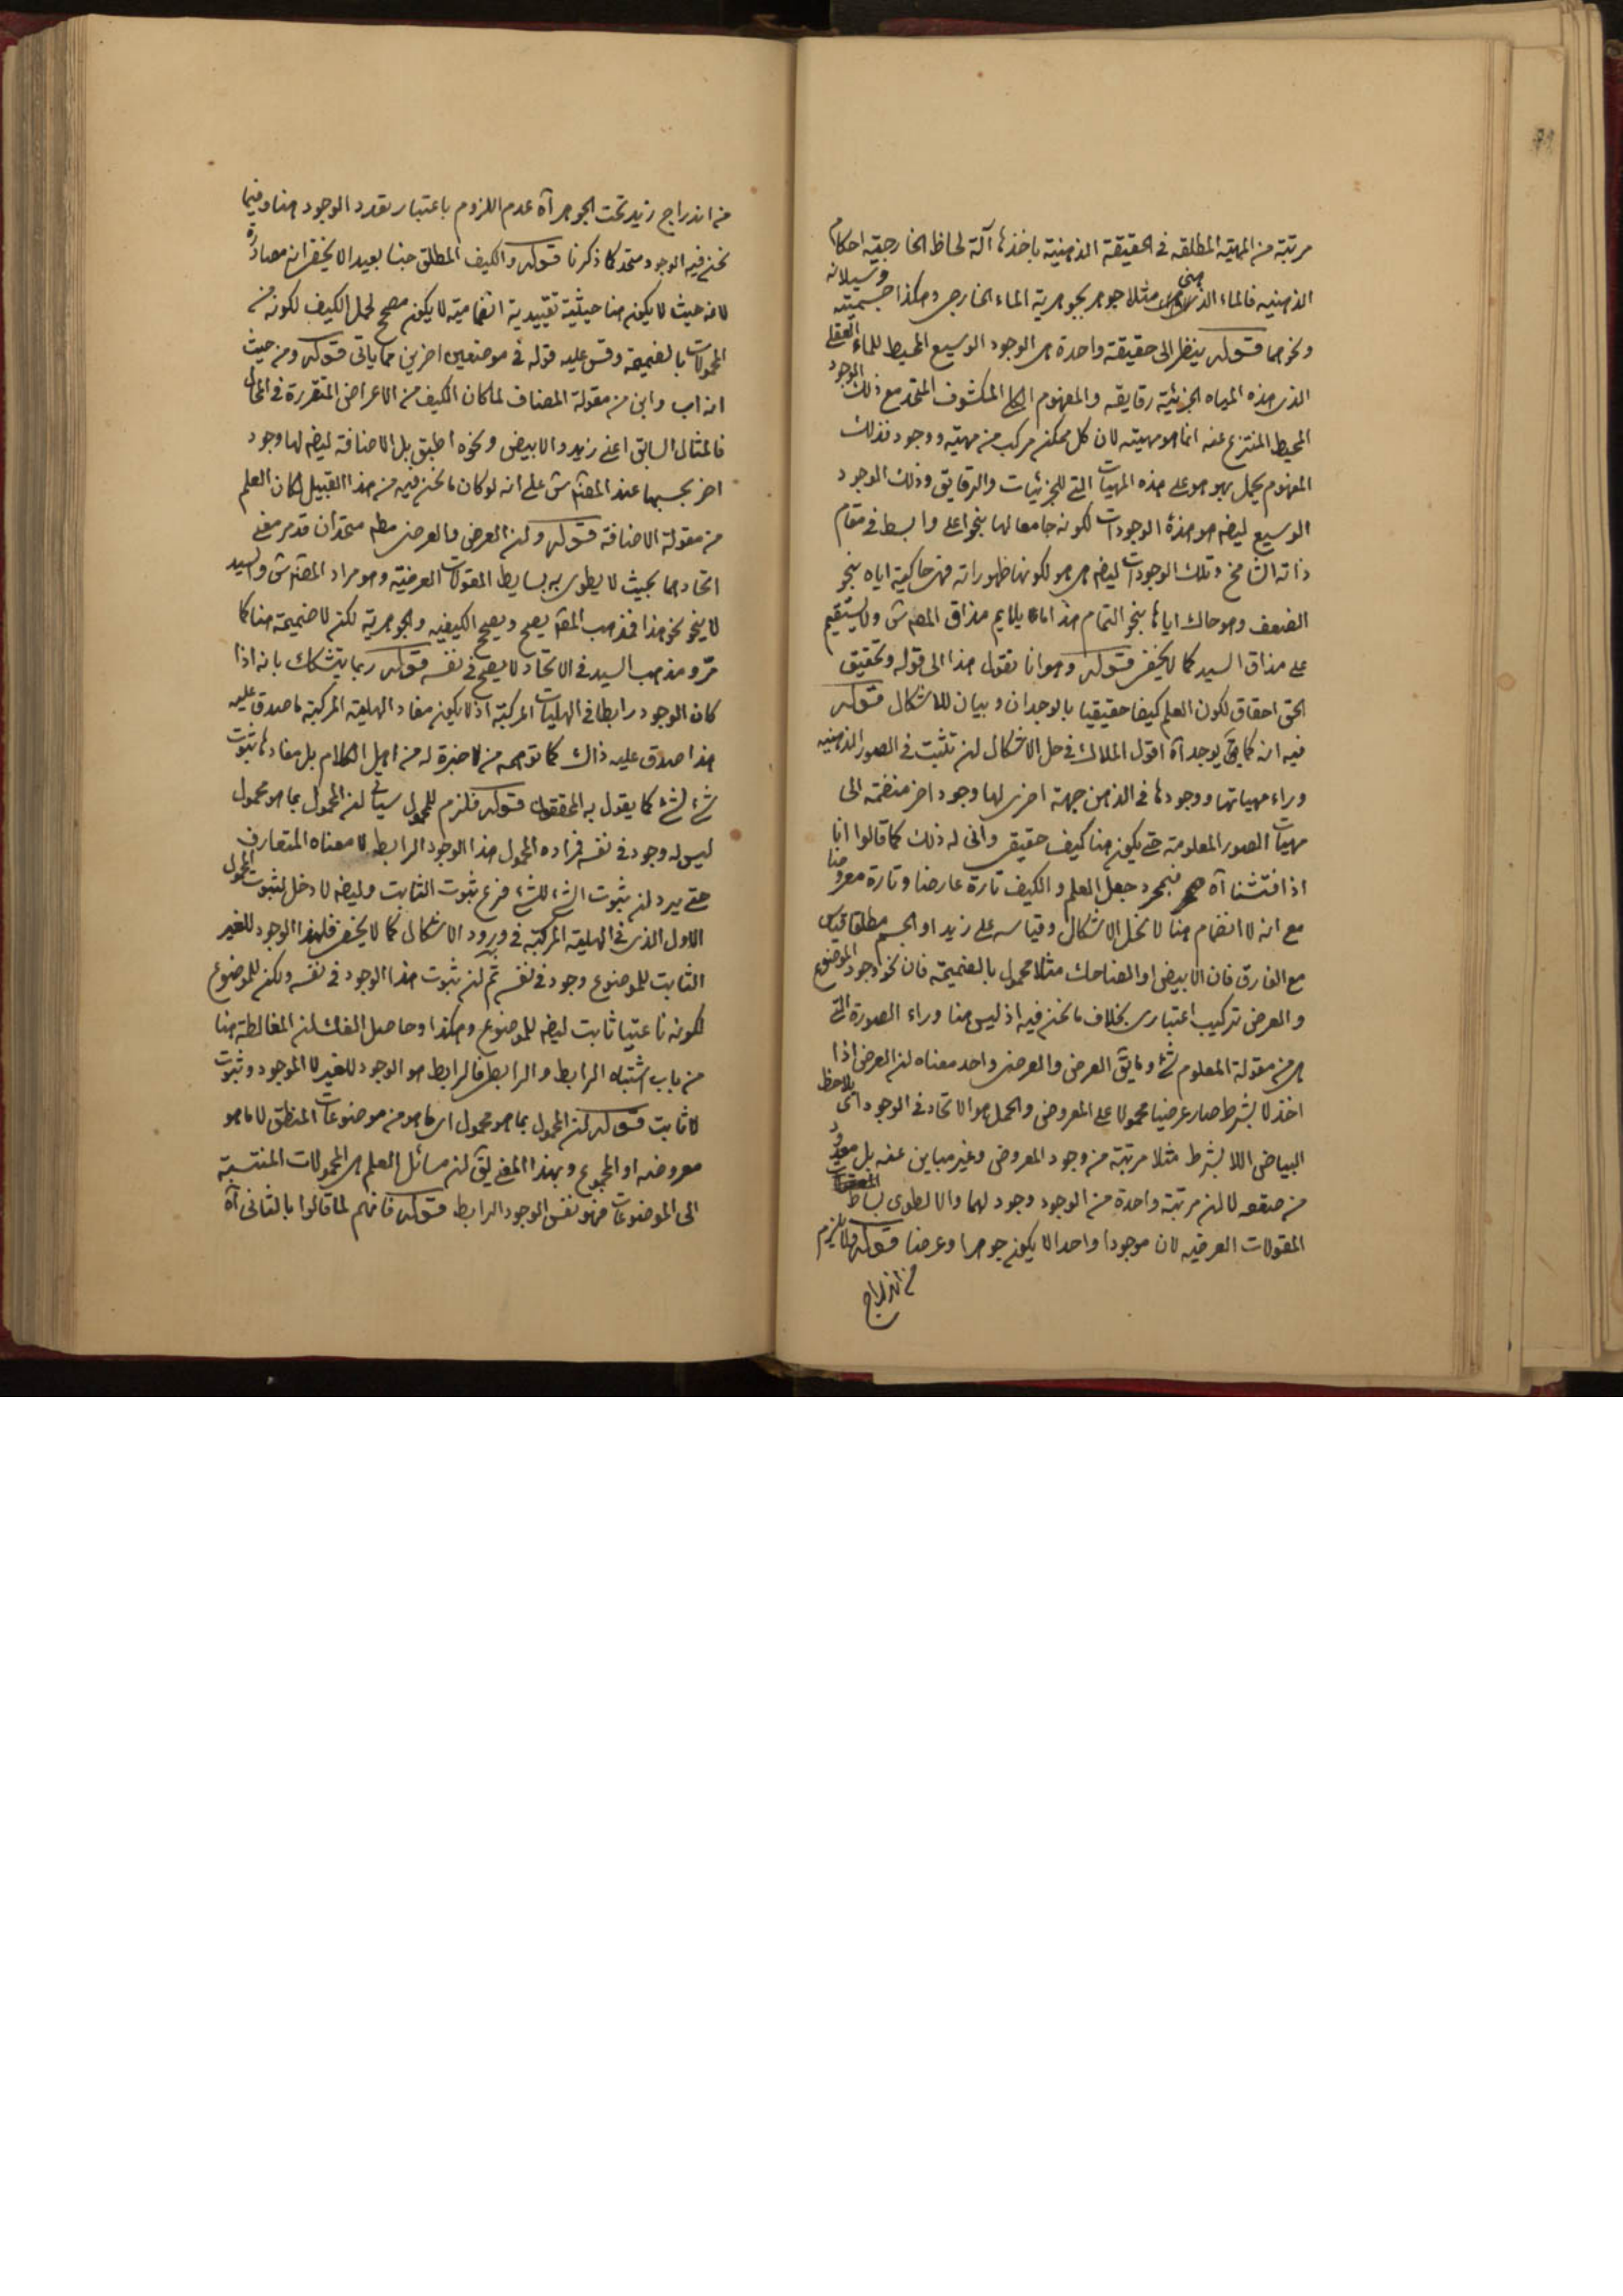 مرتبة من المهية المطلقه فى الحقيقة الذهنية باخذها آلة لحاظ الخارجية احكام
الذهنيه فالماء الذهنى مثلا جوهر بجوهرية الماء الخارجى وهكذا جسميته وسيلانه
ونحوهما قوله ينظر الى حقيقة واحدة هى الوجود الوسيع المحيط للماء العقلى
الذى هذه المياه الجزئية رقايقه والمفهوم الكلى المكشوف المتحد مع ذلك الوجود
المحيط المنتزع عنه انما هو مهيته لان كل ممكن مركب من مهية ووجود فذلك
المفهوم يحمل بهو هو على هذه المهيات التى للجزئيات والرقايق وذلك الوجود
الوسيع ليضه هو هذه الوجودات لكونه جامعا لها بنحو اعلى وابسط فى مقام
ذاته الشامخ وتلك الوجودات ليضه هى هو لكونها ظهوراته فهى حاكية اياه بنحو
الضعف وهو حاك اياها بنحو التمام هذا ما يلايم مذاق المصنف ش ولا يستقيم
على مذاق السيد كما لا يخفى قوله وهو انا نقول هذا الى قوله وتحقيق
الحق احقاق لكون العلم كيفا حقيقيا بالوجدان وبيان للاشكال قوله
فيه انه كما يق يوجد آه اقول الملاك فى حل الاشكال لن تثبت فى الصور الذهنيه
وراء مهياتها ووجودها فى الذهن جهة اخرى لها وجود اخر منضمة الى
مهيات الصور المعلومة حتى يكون هنا كيف حقيقى وانى له ذلك كما قالوا انا
اذا فتشنا آه فبمجرد جعل العلم والكيف تارة عارضا وتارة معروضا
مع انه لا انضمام هنا لا تحل الاشكال وقياسه على زيد او الجسم مطلقا قياس
مع الفارق فان الابيض او الضاحك مثلا محمول بالضميمة فان نحو وجود الموضوع
والعرض تركيب اعتبارى بخلاف ما نحن فيه اذ ليس هنا وراء الصورة التى
هى من مقولة المعلوم شئ وما يق العرض والعرضى واحد معناه لن العرض اذا
اخذ لا بشرط صار عرضيا محمولا على المعروض والحمل هو الاتحاد فى الوجود اى يلاحظ
البياض اللا بشرط مثلا مرتبة من وجود المعروض وغير مباين عنه بل معدود
من صقعه لا لن مرتبة واحدة من الوجود وجود لهما والا لطوى بساط
المقولات العرضيه لان موجودا واحدا لا يكون جوهرا وعرضا قوله ولا يلزم
من اندراج
من اندراج زيد تحت الجوهر آه عدم اللزوم باعتبار تعدد الوجود هنا وفيما
نحن فيه الوجود متحد كما ذكرنا قوله والكيف المطلق جنسا بعيدا لا يخفى انه مصادرة
لانه حيث لا يكون هنا حيثية تقييدية انضمامية لا يكون مصحح لحمل الكيف لكونه من
المحمولات بالضميمة وقس عليه قوله فى موضعين اخرين مما ياتى قوله ومن حيث
انه اب وابن من مقولة المضاف لما كان الكيف من الاعراض المتقررة فى المحال
فالمثال السابق اعنى زيد والابيض ونحوه اطبق بل الاضافة ليضه لها وجود
اخر بحسبها عند المصنف ش على انه لو كان ما نحن فيه من هذا القبيل لكان العلم
من مقولة الاضافة قوله ولن العرض والعرضى مطه متحدان قد مر معنى
اتحادهما بحيث لا يطوى به بسايط المقولات العرضية وهو مراد المصنف ش والسيد
لا ينحو نحو هذا فمذهب المصنف يصح ويصحح الكيفيه والجوهرية لكن لا ضميمة هنا كما
مر ومذهب السيد فى الاتحاد لا يصح فى نفسه قوله ربما يتشكك بانه اذا
كان الوجود رابطا فى الهليات المركبة اذ لا يكون مفاد الهلية المركبة ما صدق عليه
هذا صدق عليه ذاك كما توهمه من لا خبرة له من اهل الكلام بل مفادها ثبوت
شئ لشئ كما يقول به المحققون قوله فلزم للمحمول سياتى لن المحمول بما هو محمول
ليس له وجود فى نفسه فمراده المحمول هذا الوجود الرابط لا معناه المتعارف
حتى يرد لن ثبوت الشئ للشئ فرع ثبوت الثابت وليضه لا دخل لثبوت المحمول
الاول الذى فى الهلية المركبة فى ورود الاشكال كما لا يخفى فلهذا الوجود للغير
الثابت للموضوع وجود فى نفسه ثم لن ثبوت هذا الوجود فى نفسه ولكن للموضوع
لكونه ناعتيا ثابت ليضه للموضوع وهكذا وحاصل الفك لن المغالطة هنا
من باب اشتباه الرابط والرابطى فالرابط هو الوجود للغير لا الموجود وثبوت
لا ثابت قوله لكن المحمول بما هو محمول اى ما هو من موضوعات المنطق لا ما هو
معروضه او المجموع وبهذا المعنى يق لن مسائل العلم هى المحمولات المنتسبة
الى الموضوعات فهو نفس الوجود الرابط قوله فانهم لما قالوا بالثانى آه